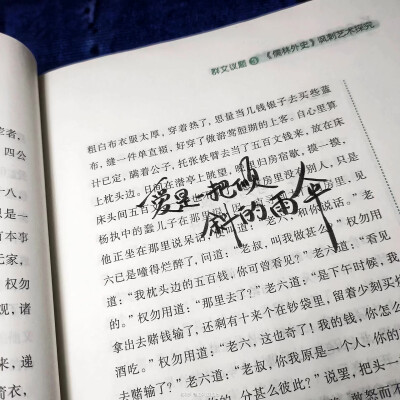 群文议题 3 《儒林外史》讽刺艺术探究
粗白布衣服太厚，穿着热了，思量当几钱银子去买些蓝
布，缝一件单直裰，好穿了做游莺脰湖的上客。自心里算
计已定，瞒着公子，托张铁臂去当了五百文钱来，放在床
上枕头边。日间在潜亭上眺望，晚里归房宿歇，摸一摸，
床头间五百文 房里没有别人，只是
杨执中的蠢儿子在那里 见
他正坐在那里说呆话 和你说话。”老
爱是一把倾
斜的雨伞
六已是噇得烂醉了，问道：“老叔，叫我做甚么？”权勿用
道：“我枕头边的五百钱，你可曾看见？”老六道：“看见
的。”权勿用道：“那里去了？”老六道：“是下午时候，我
拿出去赌钱输了，还剩有十来个在钞袋里，留着少刻买烧
酒吃。”权勿用道：“老六，这也奇了！我的钱，你怎么
去赌输了？”老六道：“老叔，你我原是一个人，你的
分甚么彼此？”说罢，把头一
四公
一八，
只是一
有本事
元家，
观，诸
来，递